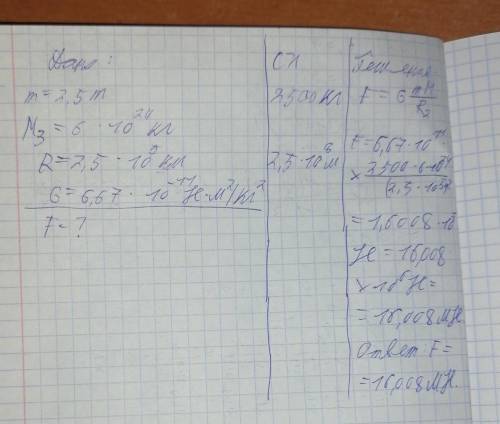 Дано:
m = 2,5 т
M₃ = 6 · 10²⁴ кг
R = 2,5 · 10⁸ км
G = 6,67 · 10⁻¹¹ Н·м²/кг²
F - ?
СИ
2500 кг
2,5 · 10⁸ м
Решение:
F = G mM/R₂
F = 6,67 · 10⁻¹¹
× 2500 · 6 · 10²⁴
= 1,6008 · 10
Н = 16,008
× 10⁶ Н =
= 16,008 МН.
Ответ: F =
= 16,008 МН.